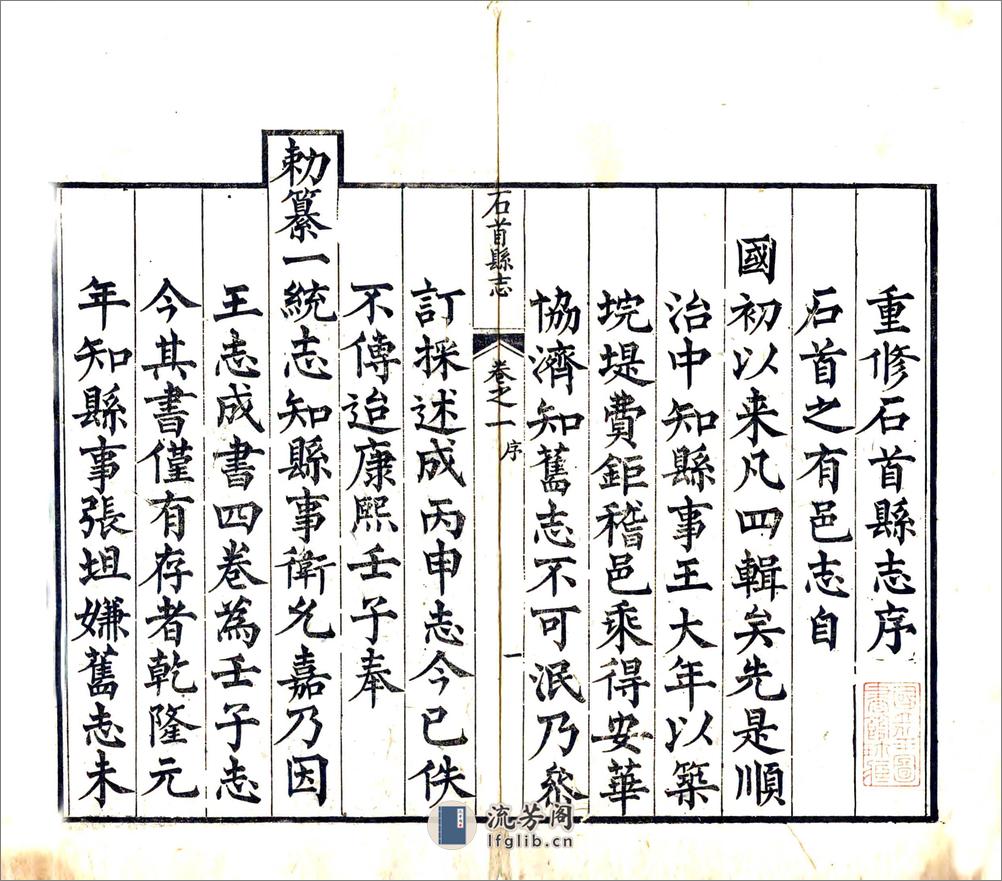 重修石首縣志序
石首之有邑志自
國初以来凡四輯矣先是順
治中知縣事王大年以築
垸堤費鉅稽邑乘得安華
協濟知舊志不可泯乃叅
石首縣志
卷之一
序
一
訂採述成丙申志今已佚
不傳迨康熙壬子奉
勅纂一統志知縣事衛允嘉乃因
王志成書四卷為壬子志
今其書僅有存者乾隆元
年知縣事張坦嫌舊志未
流芳阁
lfglib.cn